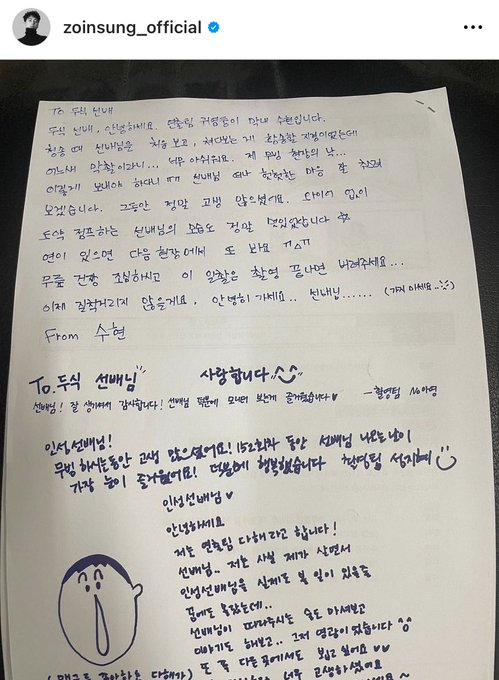 zoinsung_official
To 두식 선배
두식 선배, 안녕하세요. 연출팀 귀염둥이 막내 수현입니다.
청송 때 선배님을 처음 보고, 쳐다보는 게 황송할 지경이었는데
어느새 막촬이라니... 너무 아쉬워요. 제 무빙 현장의 낙...
이렇게 보내야 하다니 ㅠㅠ 선배님 떠나 헛헛한 마음 잘 추스려
보겠습니다. 그동안 정말 고생 많으셨어요. 와이어 없이
도약 점프하는 선배님의 모습도 정말 멋있었답니다 ☆
연이 있으면 다음 현장에서 또 봐요 ㅠㅅㅠ
무릎 건강 조심하시고 이 일촬은 촬영 끝나면 버려주세요...
이제 질척거리지 않을게요, 안녕히 가세요.. 선배님...... (가지 마세요..)
From 수현
To. 두식 선배님 사랑합니다
선배님! 잘 생겨서 감사합니다! 선배님 덕분에 모니터 보는게 즐거웠습니다♥ - 촬영팀 No아영
인성선배님!
무빙 하시는동안 고생 많으셨어요! 152회차 동안 선배님 나오는날이
가장 눈이 즐거웠어요! 덕분에 행복했습니다 촬영팀 성지혜
인성선배님♥
안녕하세요
저는 연출팀 다해라고 합니다!
선배님.. 저는 사실 제가 살면서
인성선배님을 실제로 볼 일이 있을줄
꿈에도 몰랐는데..
선배님이 따라주시는 술도 마셔보고
이야기도 해보고.. 그저 영광이었습니다
또 꼭 다른 곳에서도 뵙고 싶어요♥♥
(맹구를 좋아하는 다해가) 너무 고생하셨어요